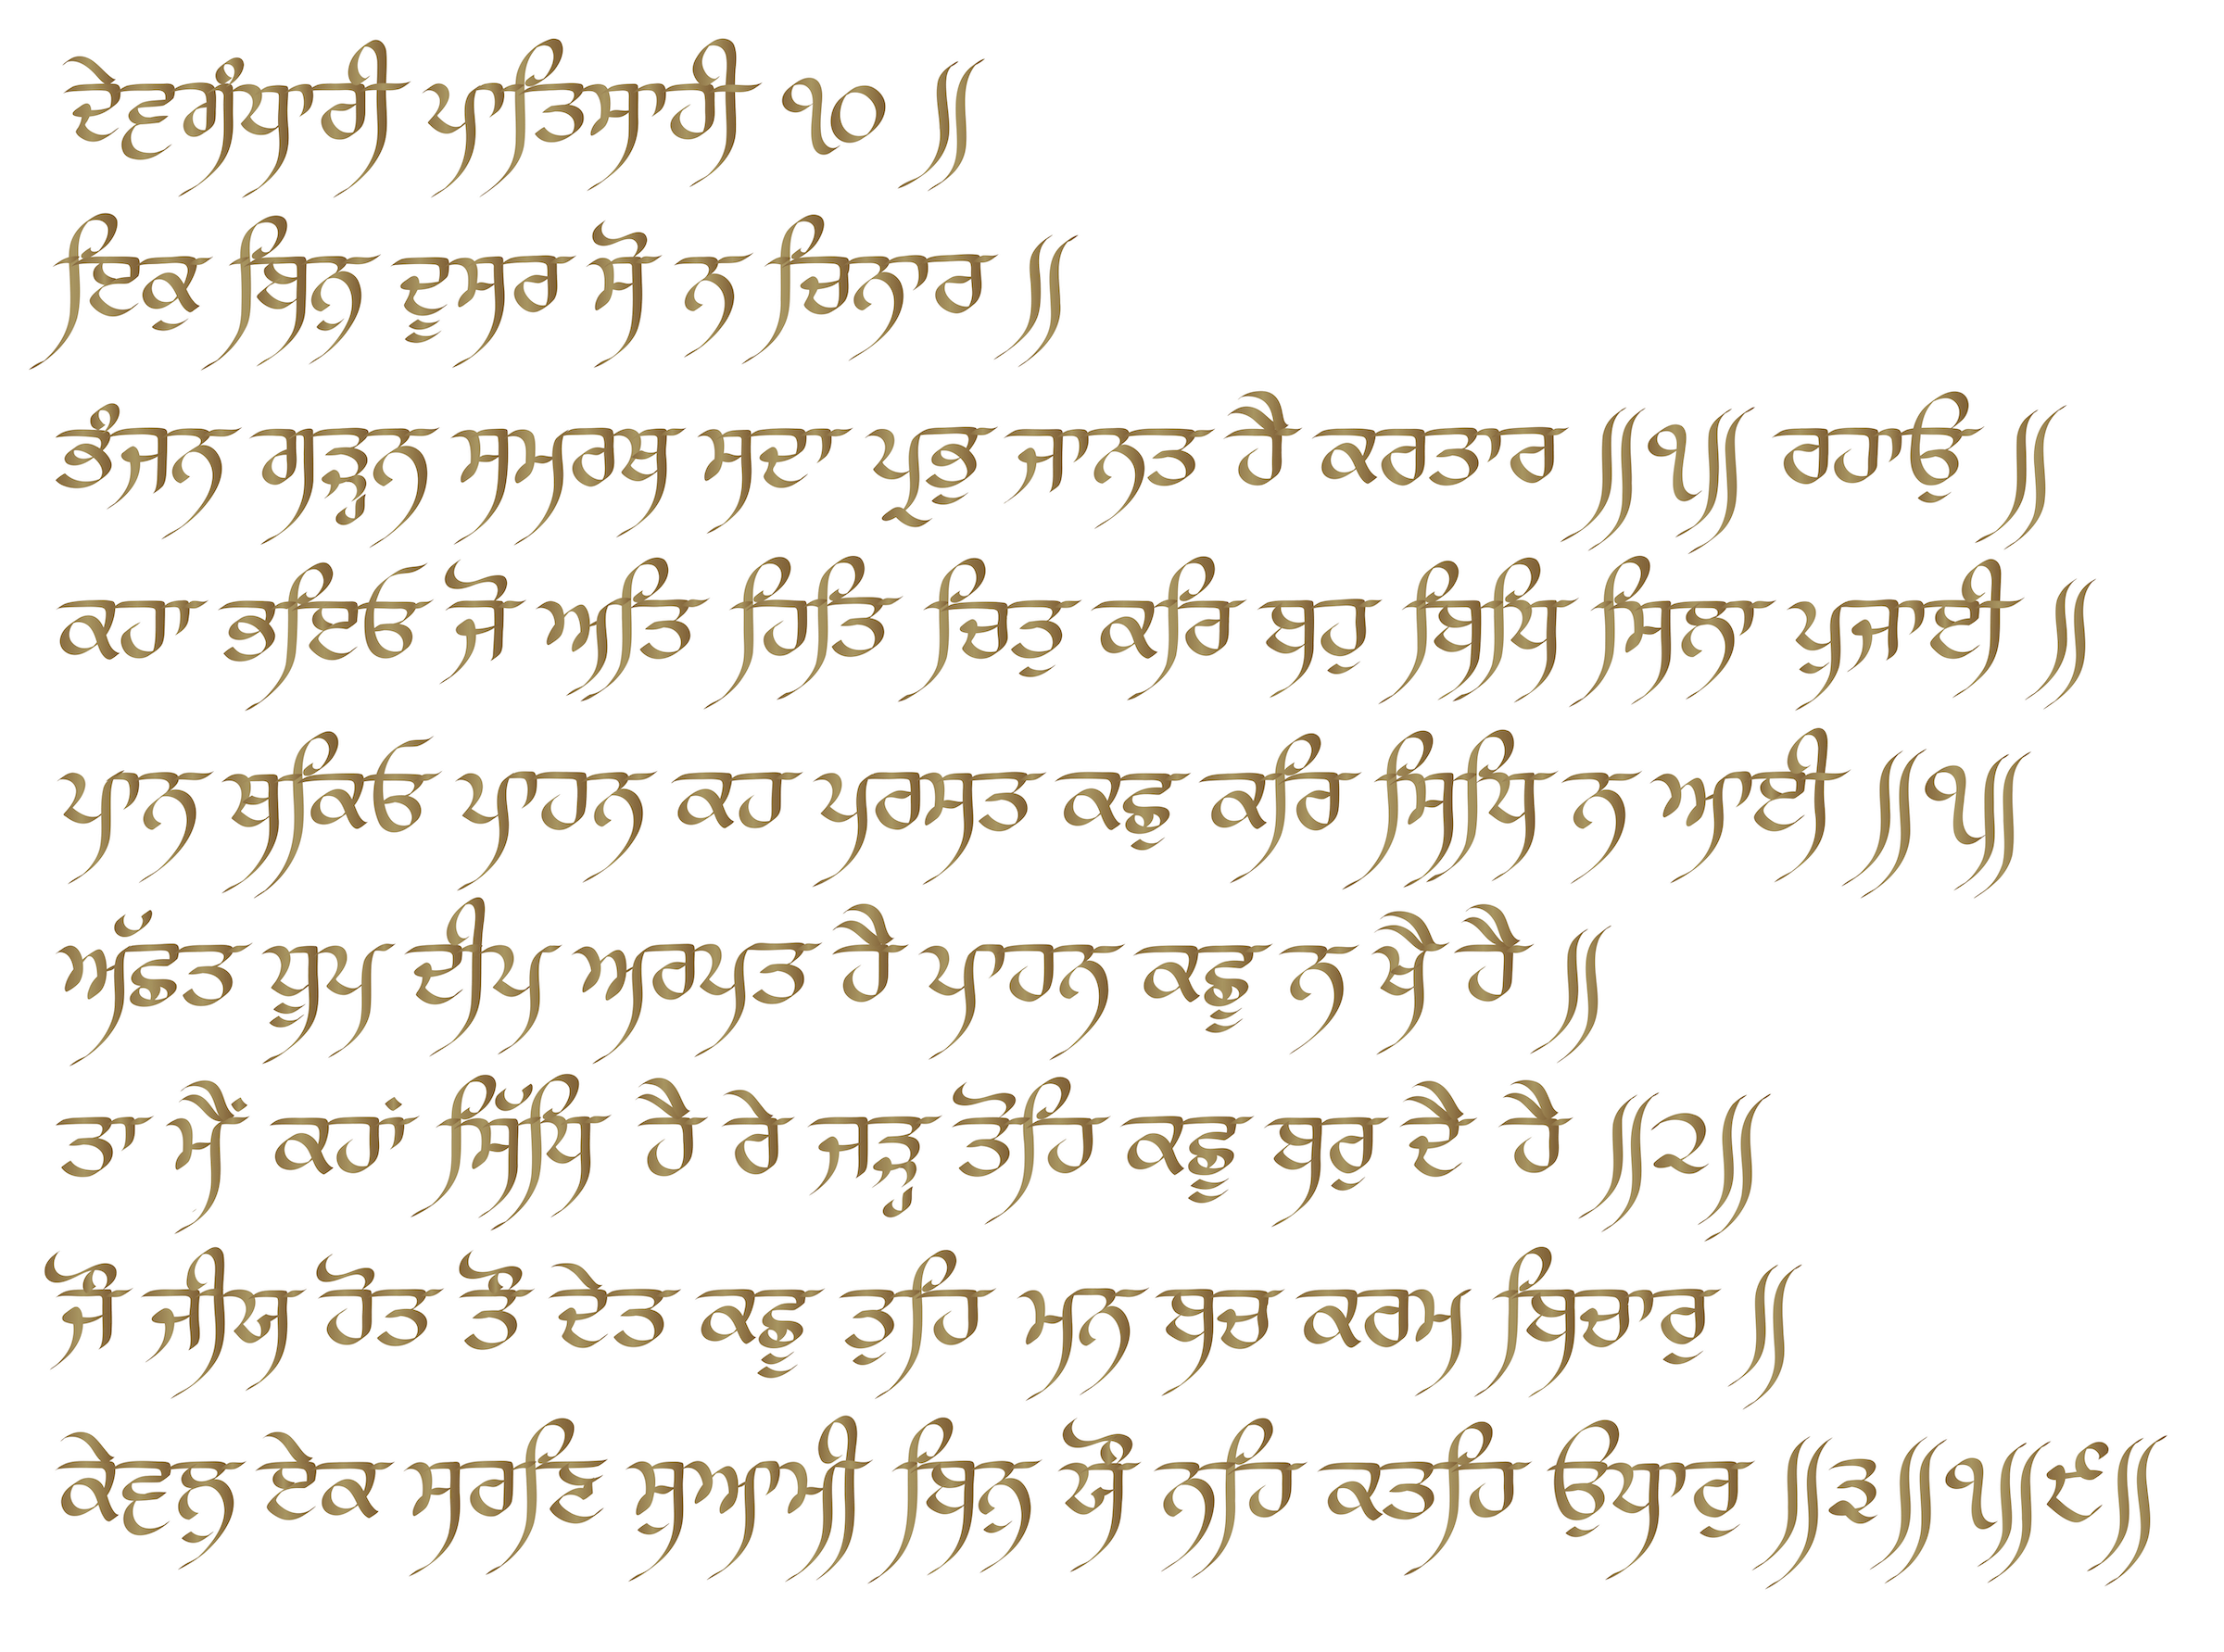 ਦੇਵਗੰਧਾਰੀ ਪਾਤਿਸਾਹੀ ੧੦ ॥
ਇਕੁ ਬਿਨੁ ਦੂਸਰ ਸੋ ਨ ਚਿਨਾਰ ॥
ਭੰਜਨ ਗੜ੍ਹਨ ਸਮਰਥ ਸਦਾ ਪ੍ਰਭੁ ਜਾਨਤ ਹੈ ਕਰਤਾਰ ॥੧॥ ਰਹਾਉ ॥
ਕਹਾ ਭਇਓ ਜੋ ਅਤਿ ਹਿਤਿ ਚਿਤੁ ਕਰਿ ਬਹੁ ਬਿਧਿ ਸਿਲਾ ਪੁਜਾਈ ॥
ਪਾਨ ਥਕਿਓ ਪਾਹਨ ਕਹ ਪਰਸਤ ਕਛੁ ਕਰਿ ਸਿਧਿ ਨ ਆਈ ॥੧॥
ਅੱਛਤ ਧੂਪ ਦੀਪ ਅਰਪਤ ਹੈ ਪਾਹਨ ਕਛੂ ਨ ਖੈ ਹੈ ॥
ਤਾ ਮੈਂ ਕਹਾਂ ਸਿੱਧਿ ਹੈ ਰੇ ਜੜ੍ਹ ਤੋਹਿ ਕਛੂ ਬਰੁ ਦੈ ਹੈ ॥੨॥
ਜੌ ਜੀਯ ਹੋਤ ਤੌ ਦੇਤ ਕਛੂ ਤੁਹਿ ਮਨ ਬਚ ਕਰਮ ਬਿਚਾਰੁ ॥
ਕੇਵਲੁ ਏਕ ਸਰਣਿ ਸੁਆਮੀ ਬਿਨੁ ਯੌ ਨਹਿ ਕਤਹਿ ਉਧਾਰੁ ॥੩॥੧॥੯॥